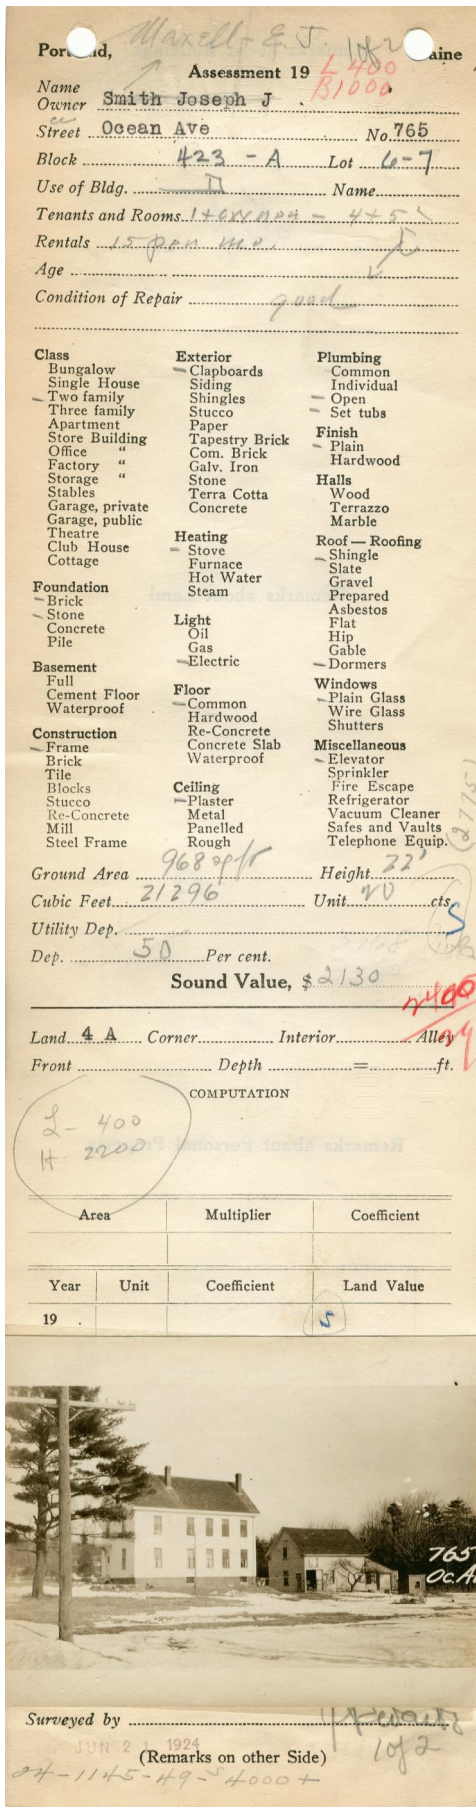 Maxell - E. J. 1 of 2
Portland, Maine
Assessment 19
L 400
B 1000
Name
Owner Smith Joseph J
Street Ocean Ave No. 765
Block 423 - A Lot 6-7
Use of Bldg. Name
Tenants and Rooms 1 + owner - 4 + 5
Rentals 15 per mo.
Age
Condition of Repair good
Class
Bungalow
Single House
Two family
Three family
Apartment
Store Building
Office "
Factory "
Storage "
Stables
Garage, private
Garage, public
Theatre
Club House
Cottage
Foundation
Brick
Stone
Concrete
Pile
Basement
Full
Cement Floor
Waterproof
Construction
Frame
Brick
Tile
Blocks
Stucco
Re-Concrete
Mill
Steel Frame
Exterior
Clapboards
Siding
Shingles
Stucco
Paper
Tapestry Brick
Com. Brick
Galv. Iron
Stone
Terra Cotta
Concrete
Heating
Stove
Furnace
Hot Water
Steam
Light
Oil
Gas
Electric
Floor
Common
Hardwood
Re-Concrete
Concrete Slab
Waterproof
Ceiling
Plaster
Metal
Panelled
Rough
Plumbing
Common
Individual
Open
Set tubs
Finish
Plain
Hardwood
Halls
Wood
Terrazzo
Marble
Roof — Roofing
Shingle
Slate
Gravel
Prepared
Asbestos
Flat
Hip
Gable
Dormers
Windows
Plain Glass
Wire Glass
Shutters
Miscellaneous
Elevator
Sprinkler
Fire Escape
Refrigerator
Vacuum Cleaner
Safes and Vaults
Telephone Equip.
(2775)
Ground Area 968 sq ft Height 22'
Cubic Feet 21296 Unit 20 cts.
S
Utility Dep.
Dep. 50 Per cent.
Sound Value, $ 2130
2400
Land 4 A Corner Interior Alley
Front Depth = ft.
COMPUTATION
L - 400
H - 2200
Area Multiplier Coefficient
Year Unit Coefficient Land Value
19 . S
765
Oc.A
Surveyed by
JUN 21 1924
1 of 2
(Remarks on other Side)
24-1145-49-S 4000+